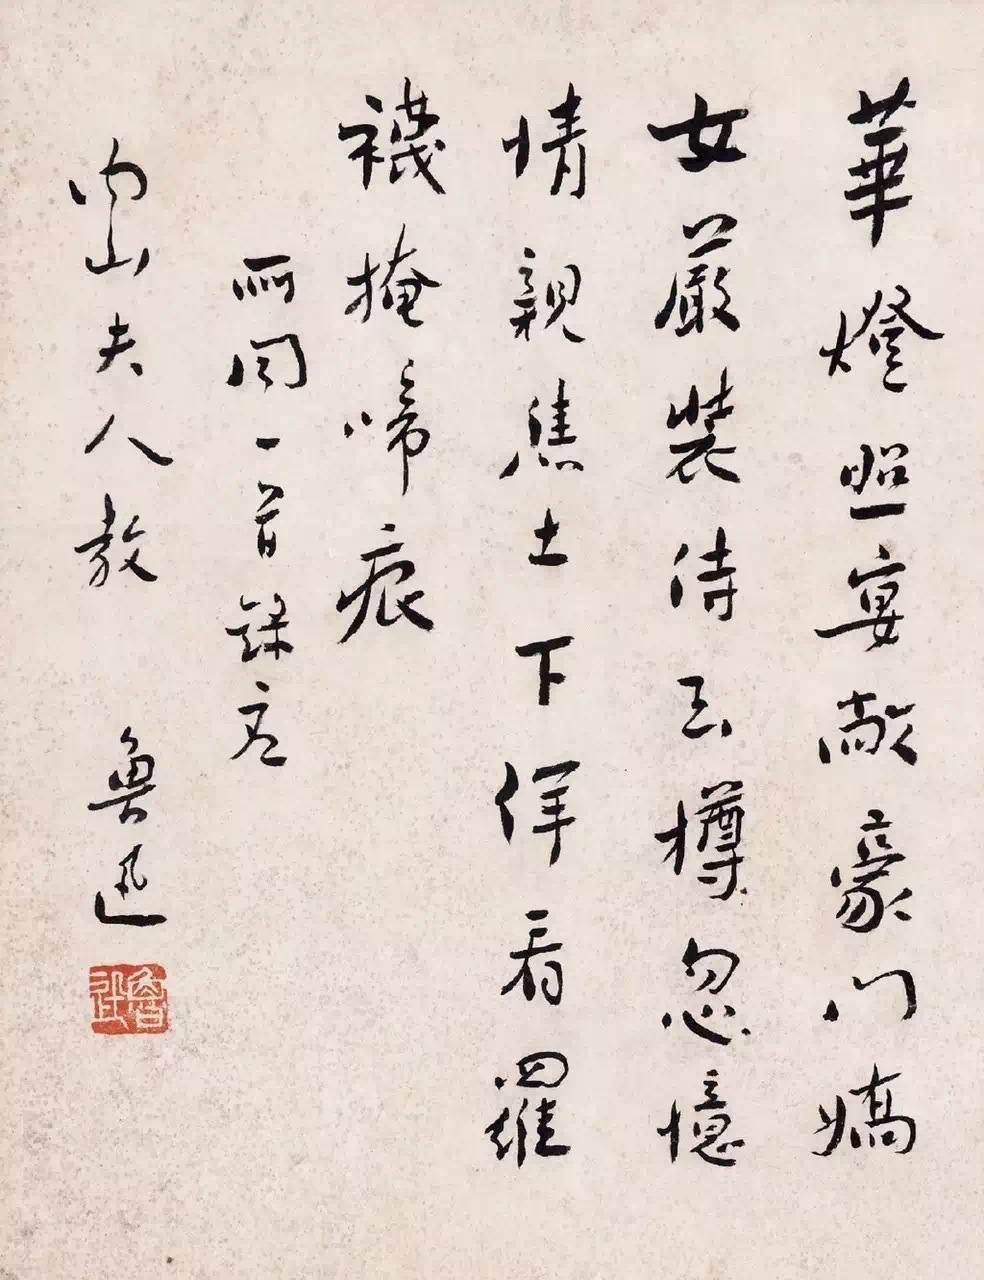 華燈照宴敞豪門嬌
女嚴裝侍玉樽忽憶
情親焦土下佯看羅
襪掩啼痕
所聞一首錄應
内山夫人教 魯迅
魯迅